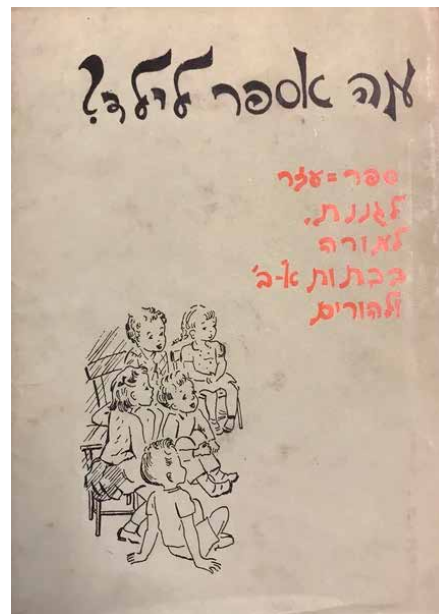 מה אספר לילד?
ספר=עזר
לגננת,
למורה
בכתות א-ב'
ולהורים